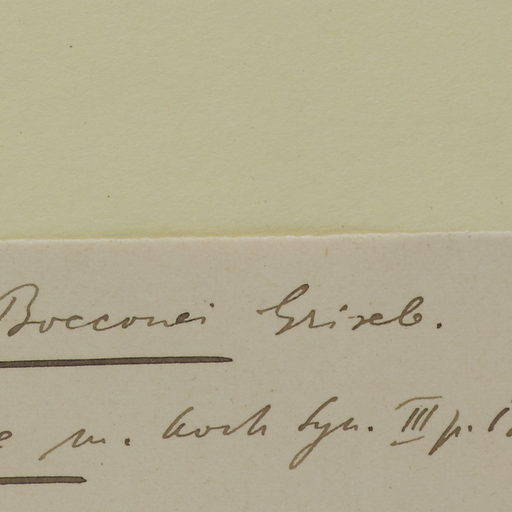 Bocconei Griseb.
e m. Koch Syn. III p. 1